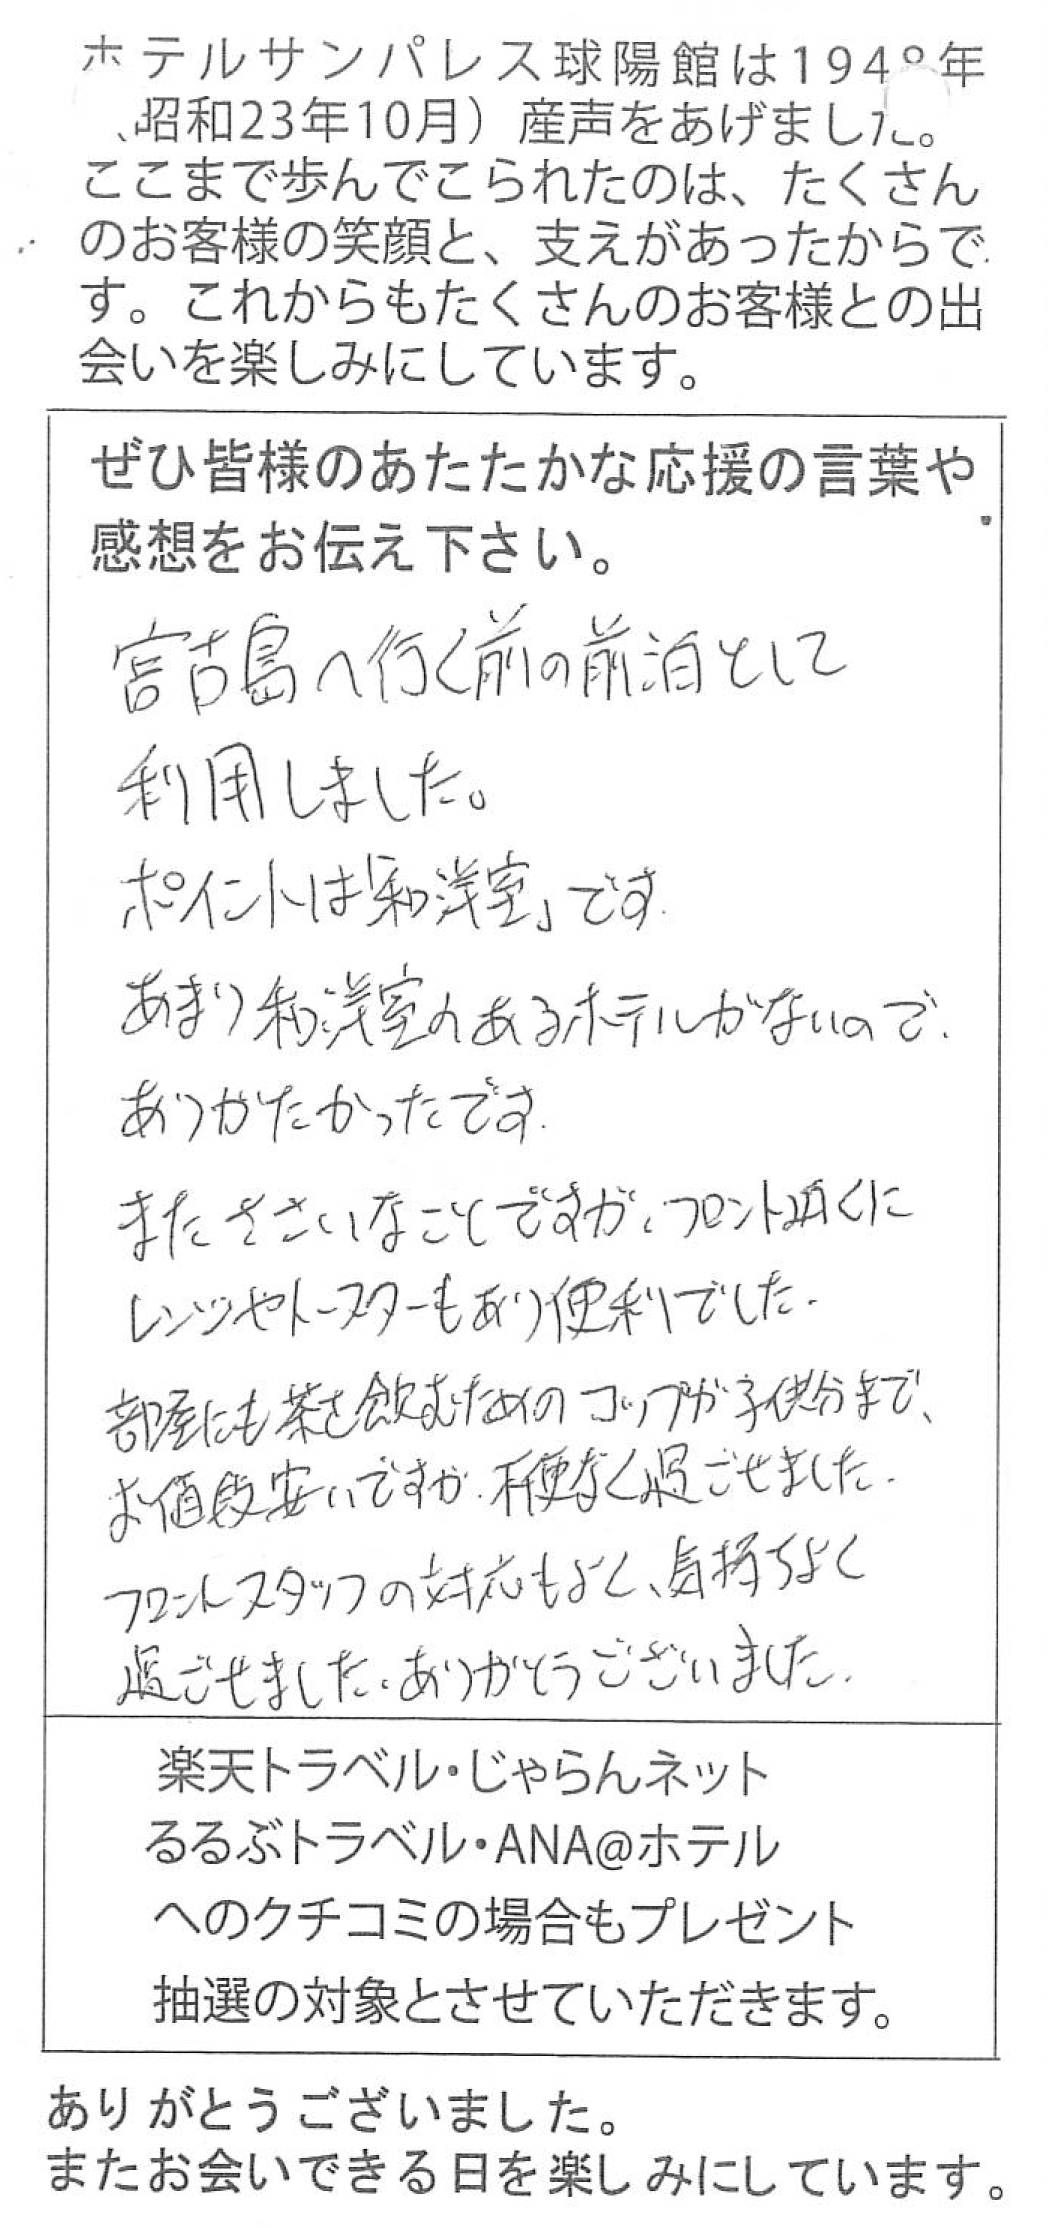 ホテルサンパレス球陽館は1948年
(昭和23年10月）産声をあげました。
ここまで歩んでこられたのは、たくさん
のお客様の笑顔と、支えがあったからで
す。これからもたくさんのお客様との出
会いを楽しみにしています。
ぜひ皆様のあたたかな応援の言葉や
感想をお伝え下さい。
宮古島へ行く前の前泊として
利用しました。
ポイントは「和洋室」です.
あまり和洋室のあるホテルがないので、
ありがたかったです.
またささいなことですが、フロント近くに
レンジやトースターもあり便利でした.
部屋にも茶を飲むためのコップが子供分まで、
お値段安いですが、不便なく過ごせました.
フロントスタッフの対応もよく、気持ちよく
過ごせました.ありがとうございました.
楽天トラベル・じゃらんネット
るるぶトラベル・ANA@ホテル
へのクチコミの場合もプレゼント
抽選の対象とさせていただきます。
ありがとうございました。
またお会いできる日を楽しみにしています。